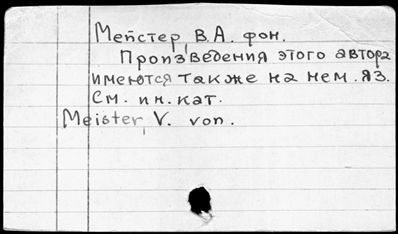 Мейстер, В.А. фон.
Произведения этого автора
имеются также на нем. яз.
См. ин. кат.
Meister, V. von.